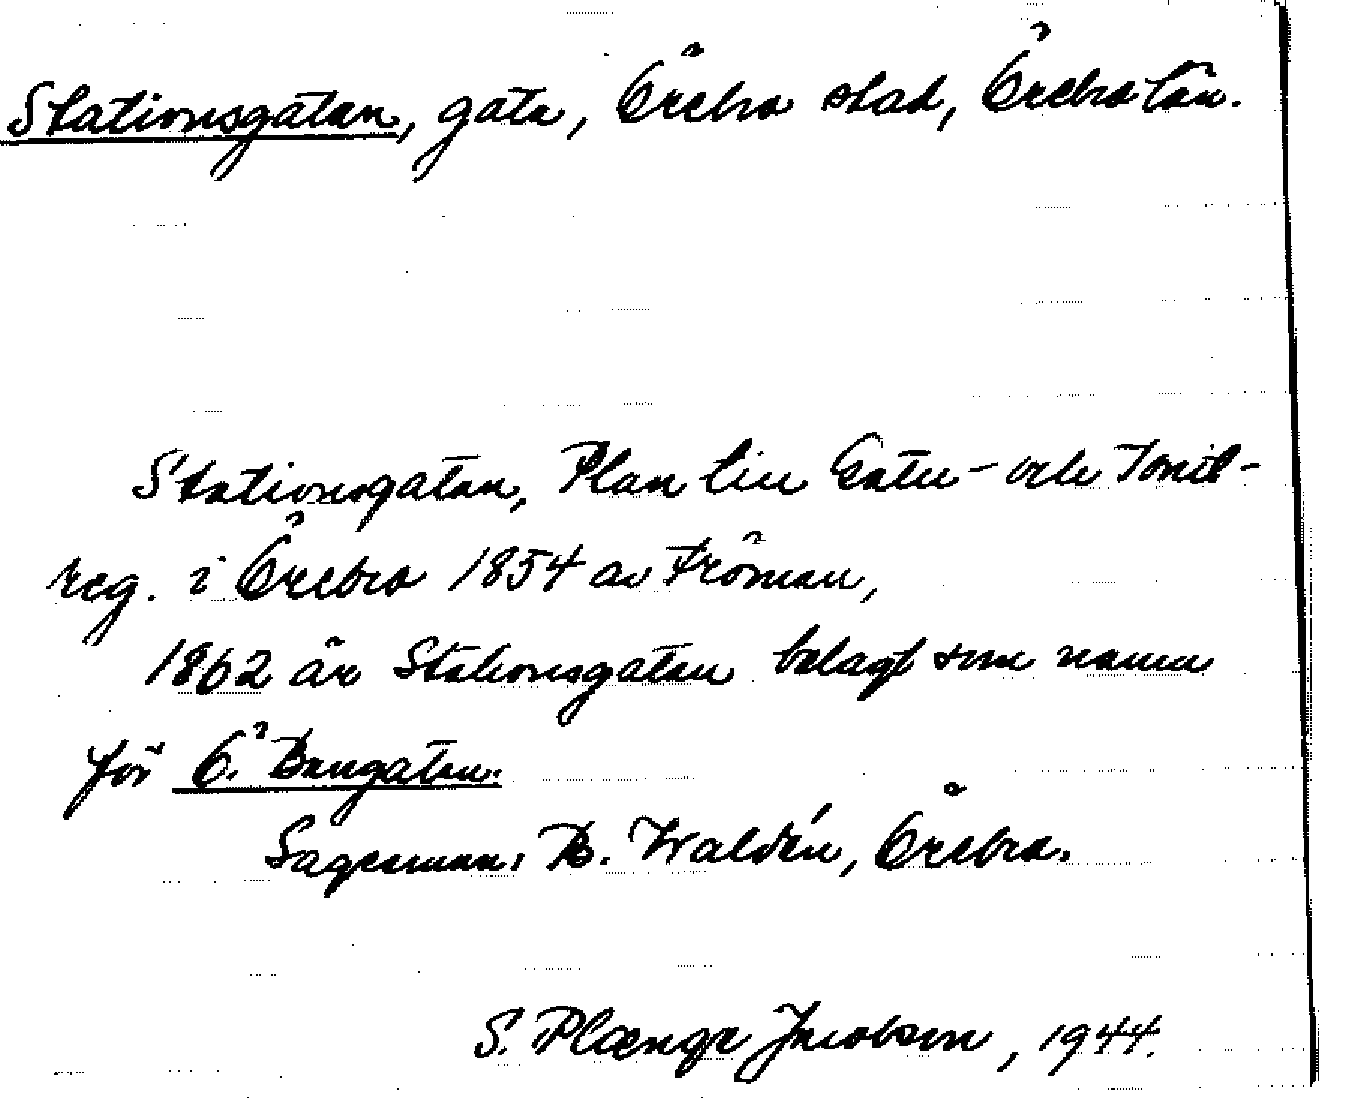 Stationsgatan, gata, Örebro stad, Örebro län.
Stationsgatan, Plan till Gatu- och Tomt-
reg. i Örebro 1854 av Fröman,
1862 är Stationsgatan belagt som namn
för Ö. Bangatan.
Sagesman: B. Waldén, Örebro.
S. Plænge Jacobson, 1944.